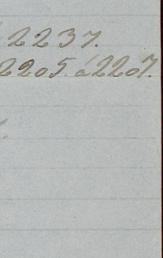 2237.
2205 á 2207.